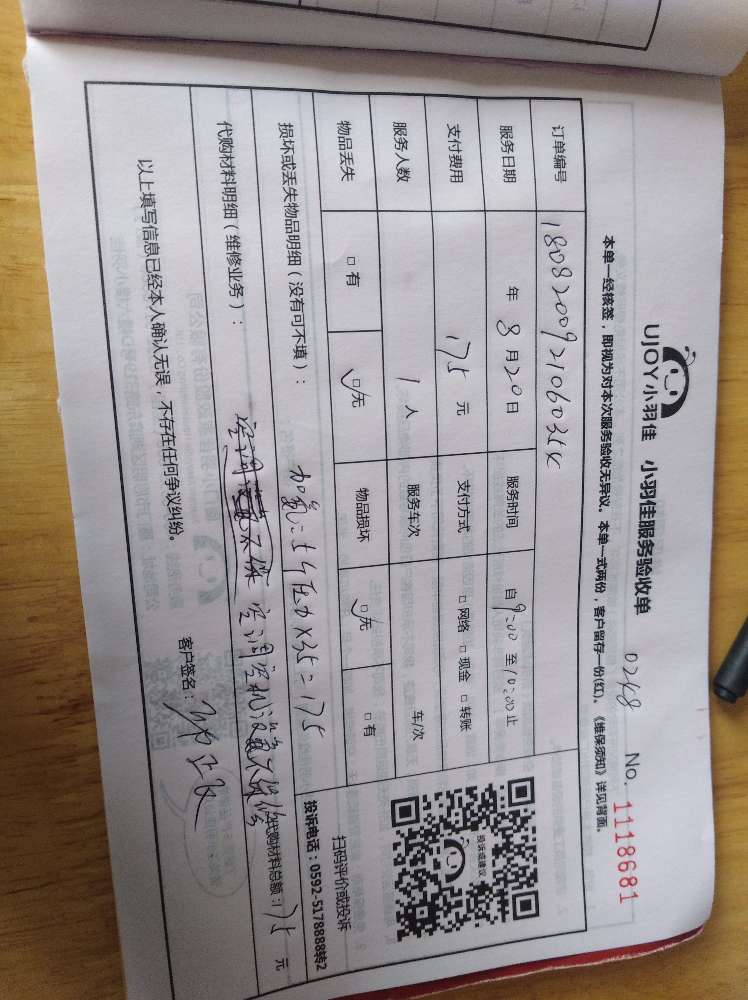 UJOY小羽佳 小羽佳服务验收单 0248 No. 1118681
本单一经核签，即视为对本次服务验收无异议。本单一式两份，客户留存一份(红)。《维保须知》详见背面。
订单编号 180820092106035X
服务日期 年 8 月 20 日 服务时间 自 9:00 至 10:00 止
支付费用 175 元 支付方式 □ 网络 □ 现金 □ 转账
服务人数 1 人 服务车次 车/次
物品丢失 □ 有 □ 无 物品损坏 □ 无 □ 有
投诉或建议
扫码评价或投诉
投诉电话：0592-5178888转2
损坏或丢失物品明细（没有可不填）：
加氟：5个压力X35=175
代购材料明细（维修业务）：
空调 空调 代购材料总额：175 元
以上填写信息已经本人确认无误，不存在任何争议纠纷。
客户签名：